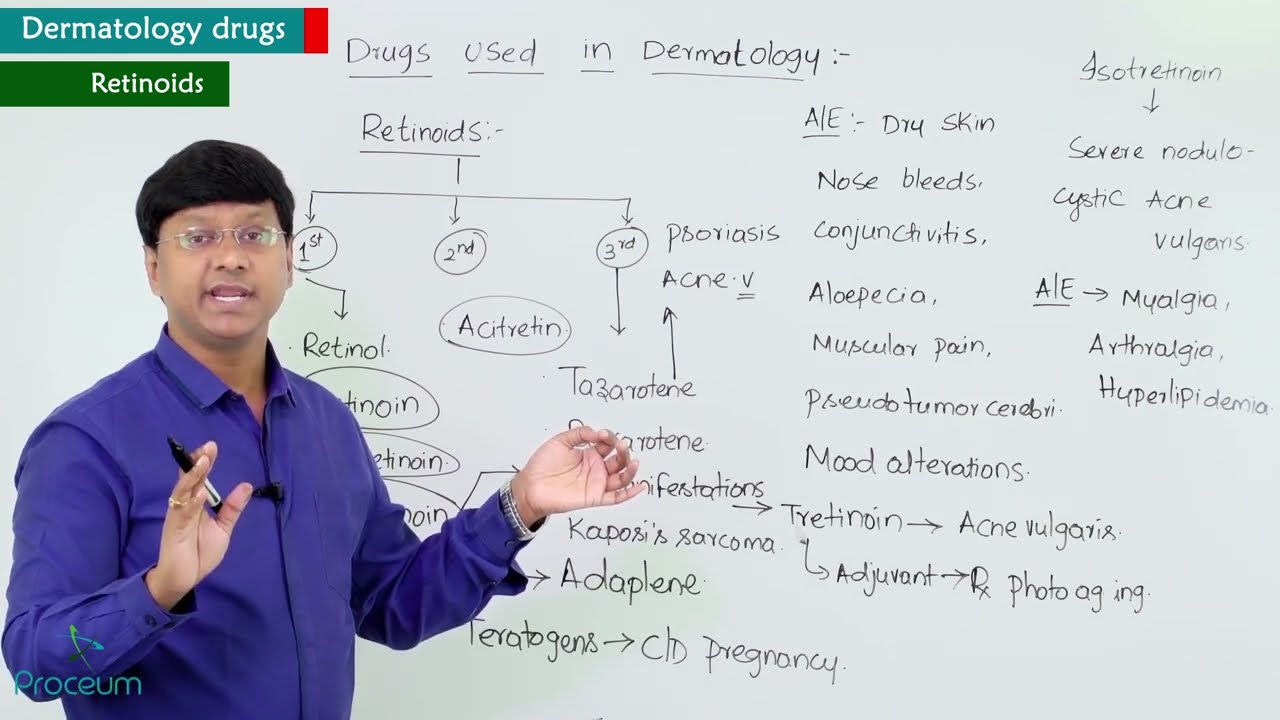 Dermatology drugs
Retinoids
Drugs used in Dermatology:-
Retinoids:-
1st
2nd
3rd
Retinol.
Acitretin
psoriasis
Acne.v
Tazarotene
Kaposi's sarcoma.
Adaplene.
Teratogens → C/D pregnancy.
A/E :- Dry skin
Nose bleeds,
conjunctivitis,
Aloepecia,
Muscular pain,
pseudotumorcerebri.
Mood alterations.
→ Tretinoin → Acne vulgaris.
Adjuvant → Rx photoaging.
Isotretinoin
Severe nodulo-
cystic Acne
vulgaris.
A/E → Myalgia,
Arthralgia,
Hyperlipidemia.
Proceum